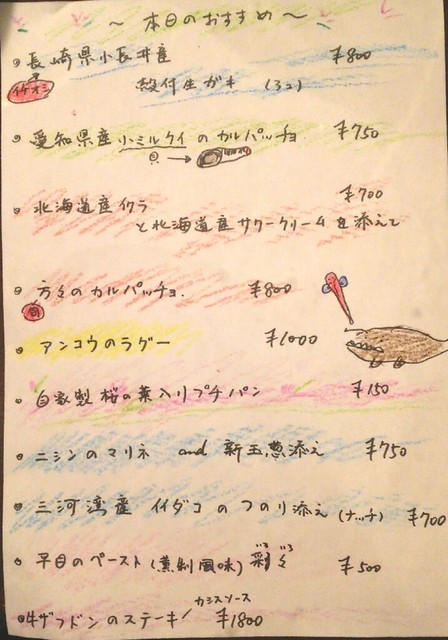 ～ 本日のおすすめ ～
長崎県小長井産 ¥800
イチオシ
殻付生ガキ (3コ)
愛知県産小ミルクイのカルパッチョ ¥750
貝→
北海道産イクラ ¥700
と北海道産サワークリームを添えて
方々のカルパッチョ. ¥800
旬
アンコウのラグー ¥1000
自家製桜の葉入りプチパン ¥150
ニシンのマリネ and 新玉葱添え ¥750
三河湾産 イイダコのつのり添え (ナッチ) ¥700
平目のペースト (薫制風味) 彩々 ¥500
いろ いろ
カシスソース
牛ザブトンのステーキ ¥1800